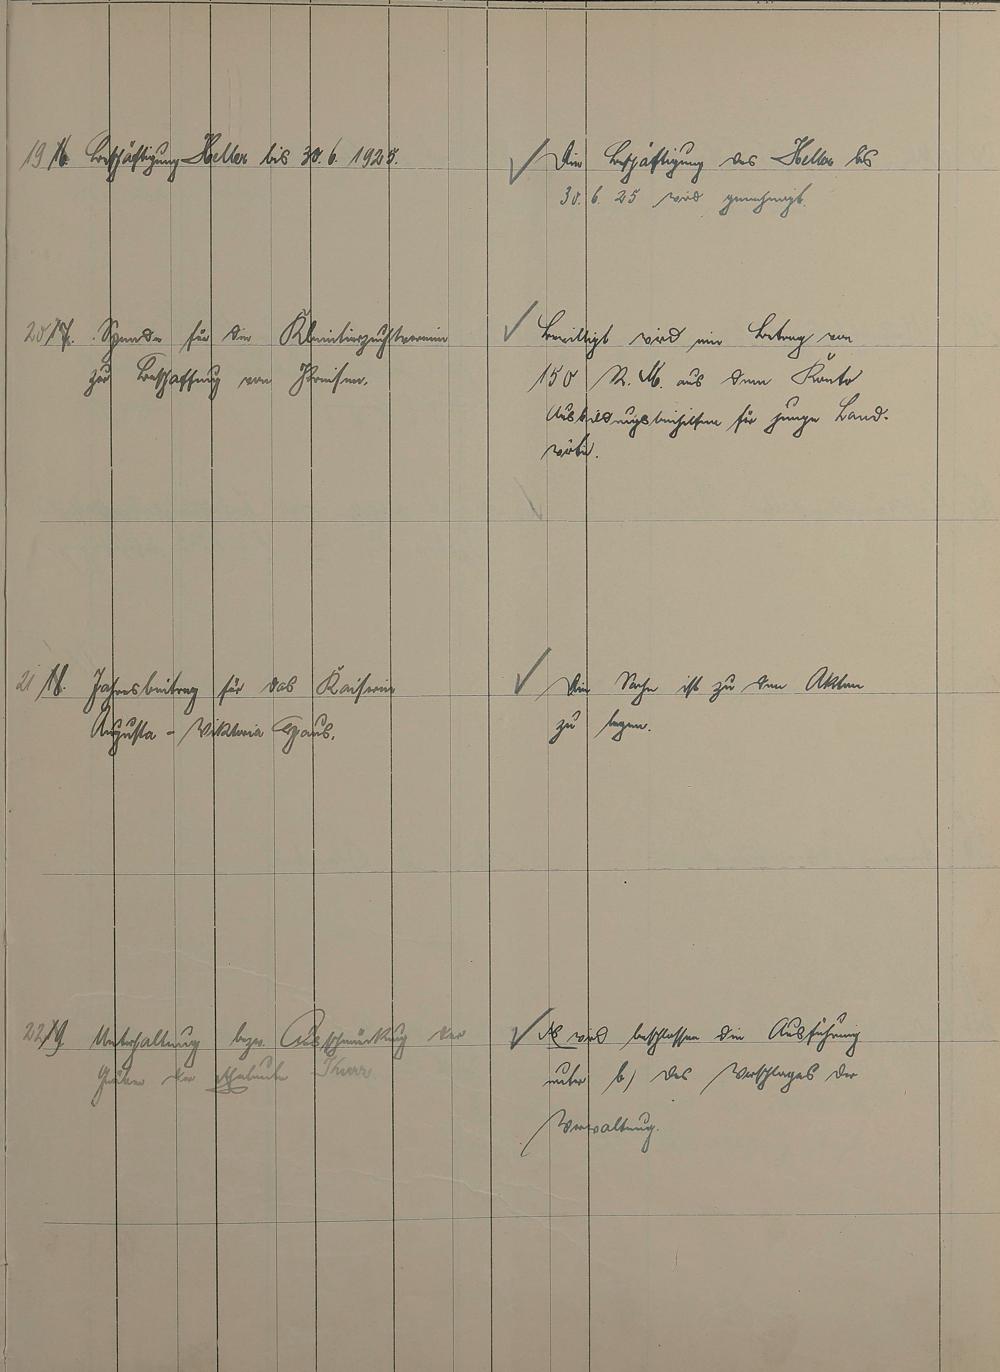 19/16. Beschäftigung Heller bis 30.6.1925.
Die Beschäftigung des Heller bis
30.6.25 wird genehmigt.
20/17. Spende für den Kleintierzuchtverein
zur Beschaffung von Preisen.
Bewilligt wird ein Betrag von
150 R.M. aus dem Konto
Ausbildungsbeihilfen für junge Land-
wirte.
21/18. Jahresbeitrag für das Kaiserin
Augusta-Viktoria Haus.
Die Sache ist zu den Akten
zu legen.
22/19. Unterhaltung bezw. Ausschmückung der
Gräber der Eheleute
Es wird beschlossen die Ausführung
unter b) des Vorschlages der
Verwaltung.